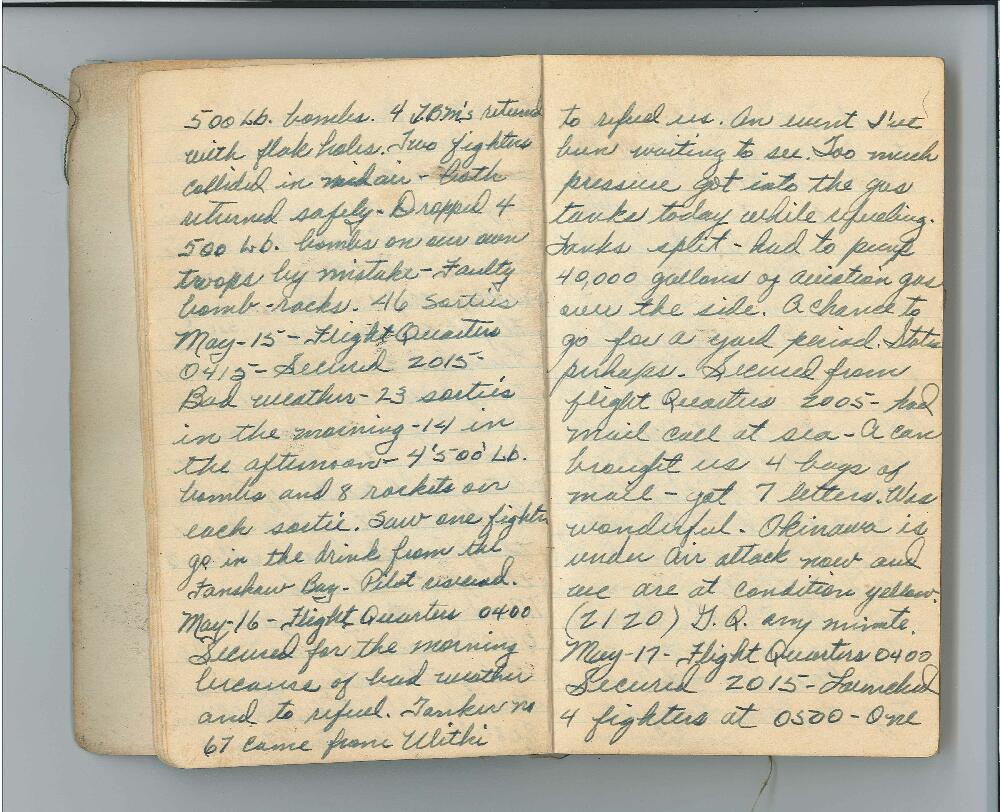 500 Lb. bombs. 4 TBM's returned
with flak holes. Two fighters
collided in midair - both
returned safely - Dropped 4
500 Lb. bombs on our own
troops by mistake - Faulty
bomb-racks. 46 Sorties
May-15- Flight Quarters
0415 - Secured 2015-
Bad weather - 23 sorties
in the morning - 14 in
the afternoon - 4 '500' Lb.
bombs and 8 rockets on
each sortie. Saw one fighter
go in the drink from the
Fanshaw Bay - Pilot recovered.
May-16- Flight Quarters 0400
Secured for the morning
because of bad weather
and to refuel. Tanker no
67 came from Ulithi
to refuel us. An event I've
been waiting to see. Too much
pressure got into the gas
tanks today while refueling.
Tanks split - had to pump
40,000 gallons of aviation gas
over the side. A chance to
go for a yard period. States
perhaps. Secured from
flight Quarters 2005 - had
mail call at sea - A can
brought us 4 bags of
mail - got 7 letters. Was
wonderful. Okinawa is
under air attack now and
we are at condition yellow.
(2120) G.Q. any minute.
May-17- Flight Quarters 0400
Secured 2015 - Launched
4 fighters at 0500 - One